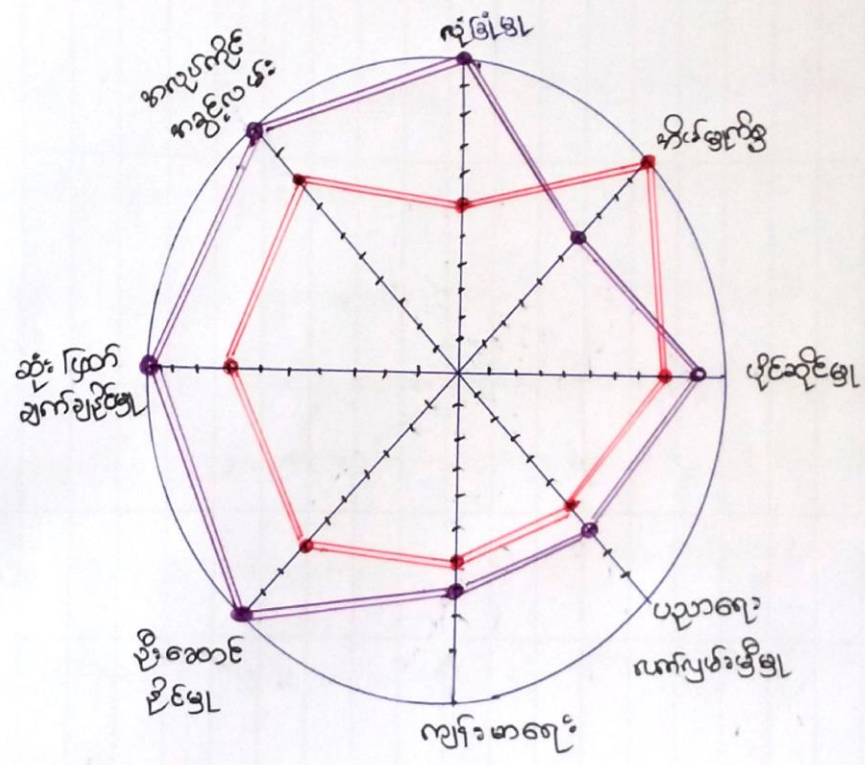 လုံခြုံမှု
အိမ်မှုကိစ္စ
ပိုင်ဆိုင်မှု
ပညာရေး
လက်လှမ်းမှီမှု
ကျန်းမာရေး
ဦးဆောင်
နိုင်မှု
ဆုံးဖြတ်
ချက်ချနိုင်မှု
အလုပ်ကိုင်
အခွင့်လမ်း